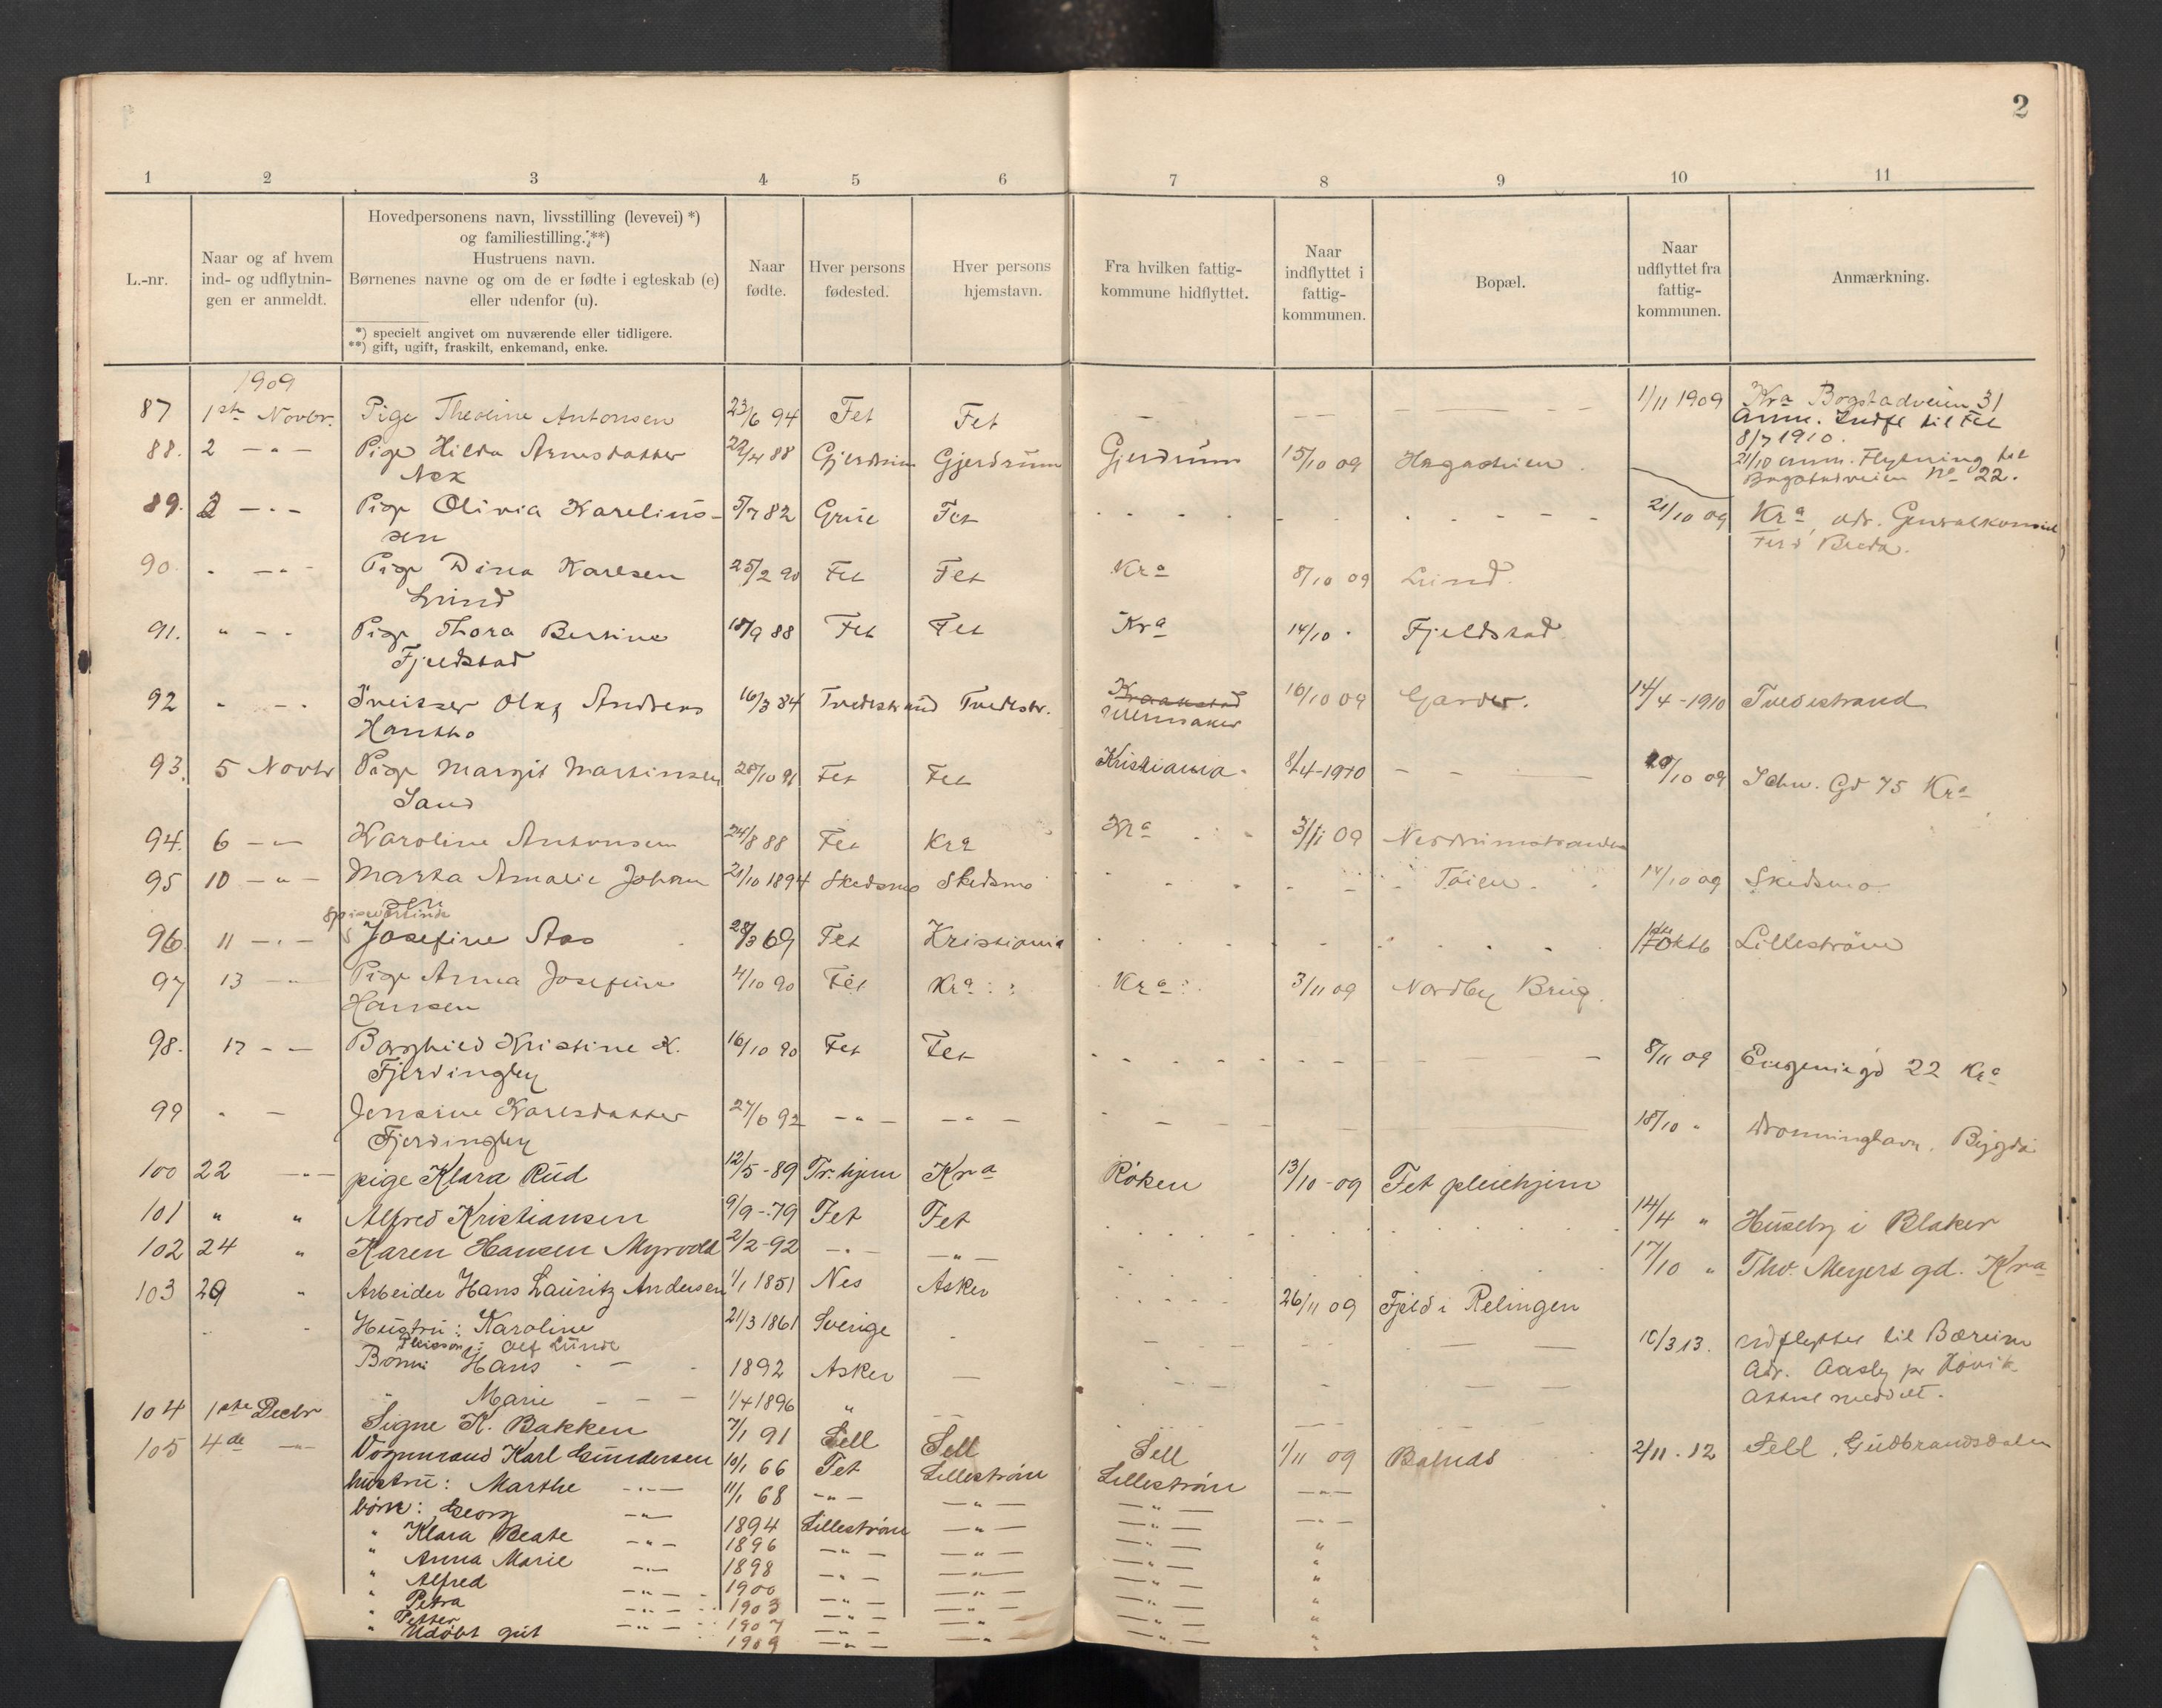 2
1 2 3 4 5 6 7 8 9 10 11
L.-nr.
Naar og af hvem
ind- og udflytnin-
gen er anmeldt.
Hovedpersonens navn, livsstilling (levevei) *)
og familiestilling.**)
Hustruens navn.
Børnenes navne og om de er fødte i egteskab (e)
eller udenfor (u).
*) specielt angivet om nuværende eller tidligere.
**) gift, ugift, fraskilt, enkemand, enke.
Naar
fødte.
Hver persons
fødested.
Hver persons
hjemstavn.
Fra hvilken fattig-
kommune hidflyttet.
Naar
indflyttet i
fattig-
kommunen.
Bopæl.
Naar
udflyttet fra
fattig-
kommunen.
Anmærkning.
1909
87 1ste Novbr. Pige Theoline Antonsen 23/6 94 Fet Fet 1/11 1909 Kra Bogstadveien 31
Anm. Indfl til Fet
8/7 1910.
88. 2 - " - Pige Hilda Arnesdatter 22/4 88 Gjerdrum Gjerdrum Gjerdrum 15/10 09
21/10 anm. Flytning til
Bogstadveien No 22.
89. 2 - " - Pige Olivia Karelius- 5/7 82 Grue Fet 21/10 09 Kra, adr. Generalkonsul
sen
90 " - " - Pige Dina Karlsen 25/2 90 Fet Fet Kra 8/10 09 Lund.
Lund
91. " - " Pige Thora Bertine 18/9 88 Fet Fet Kra 14/10 " Fjeldstad
Fjeldstad
92 " - " Sveitser Olaf Andreas 16/3 84 Tvedestrand Tvedestr. Kraakstad 16/10 09 Garder. 14/4 - 1910 Tvedestrand
Ullensaker
93. 5 Novbr Pige Margit Martinsen 28/10 91 Fet Fet Kristiania 8/4-1910 - - - 29/10 09 Schw. Gd 75 Kra
Sand
94. 6 - " - Karoline Antonsen 24/8 88 Fet Kra Kra 3/11 09
95 10 - " - Marta Amalie Johan 21/10 1894 Skedsmo Skedsmo Tøien 14/10 09 Skedsmo.
sen
Spiseværtinde
96. 11 - " - Josefine Aas 28/3 69 Fet Kristiania Lillestrøm
97 13 - " Pige Anna Josefine 4/10 90 Fet Kra Kra 3/11 09 Nordby Brug.
Hansen
98. 17 - - Borghild Kristine K. 16/10 90 Fet Fet 8/11 09 Eugeniegd 22 Kra
Fjerdingby
99 " - Jensine Karlsdatter 27/6 92 - " - - " - 18/10 " Dronninghavn, Bygdø
Fjerdingby
100 22 - " - pige Klara Rud 12/5 - 89 Tr.hjem Kra Røken 13/10 - 09 Fet pleiehjem
101 " " Alfred Kristiansen 9/9 - 79 Fet Fet 14/4 " Huseby i Blaker
102 24 " Karen Hansen Myrvold 2/2 - 92 - " - - " - 17/10 " Thv. Meyers gd. Kra
103 29 " Arbeider Hans Lauritz Andersen 1/1 1851 Nes Asker 26/11 09 Fjeld i Relingen
Hustru: Karoline 21/3 1861 Sverige
Pleiesøn: Alf Lunde 10/3 13. udflyttet til Bærum
Børn: Hans - 1892 Asker - Adr. Aasly pr Høvik
" Marie - - 1/4 1896 " Attest meddelt.
104 1ste Decbr Signe K. Bakken 7/1 91 Sell Sell Sell 1/11 09 2/11 . 12 Sell, Gudbrandsdalen
105 4de - Vognmand Karl Gundersen 10/1 66 Fet Lillestrøm Lillestrøm - " -
hustru: Marthe - " - 11/1 68 - " - - " - - " - - " -
børn: Georg - " - 1894 Lillestrøm - " - - " - "
" Klara Beate - " - 1896 - " - - " - - " - "
" Anna Marie - " - 1898 - " - - " - - " - "
" Alfred - " - 1900 - " - - " - - " - "
" Petra - " - 1903 - " - - " - - " - "
" Petter - " - 1907 - " - - " - - " - "
" Udøbt gut 1909 - " - - " - - " - "